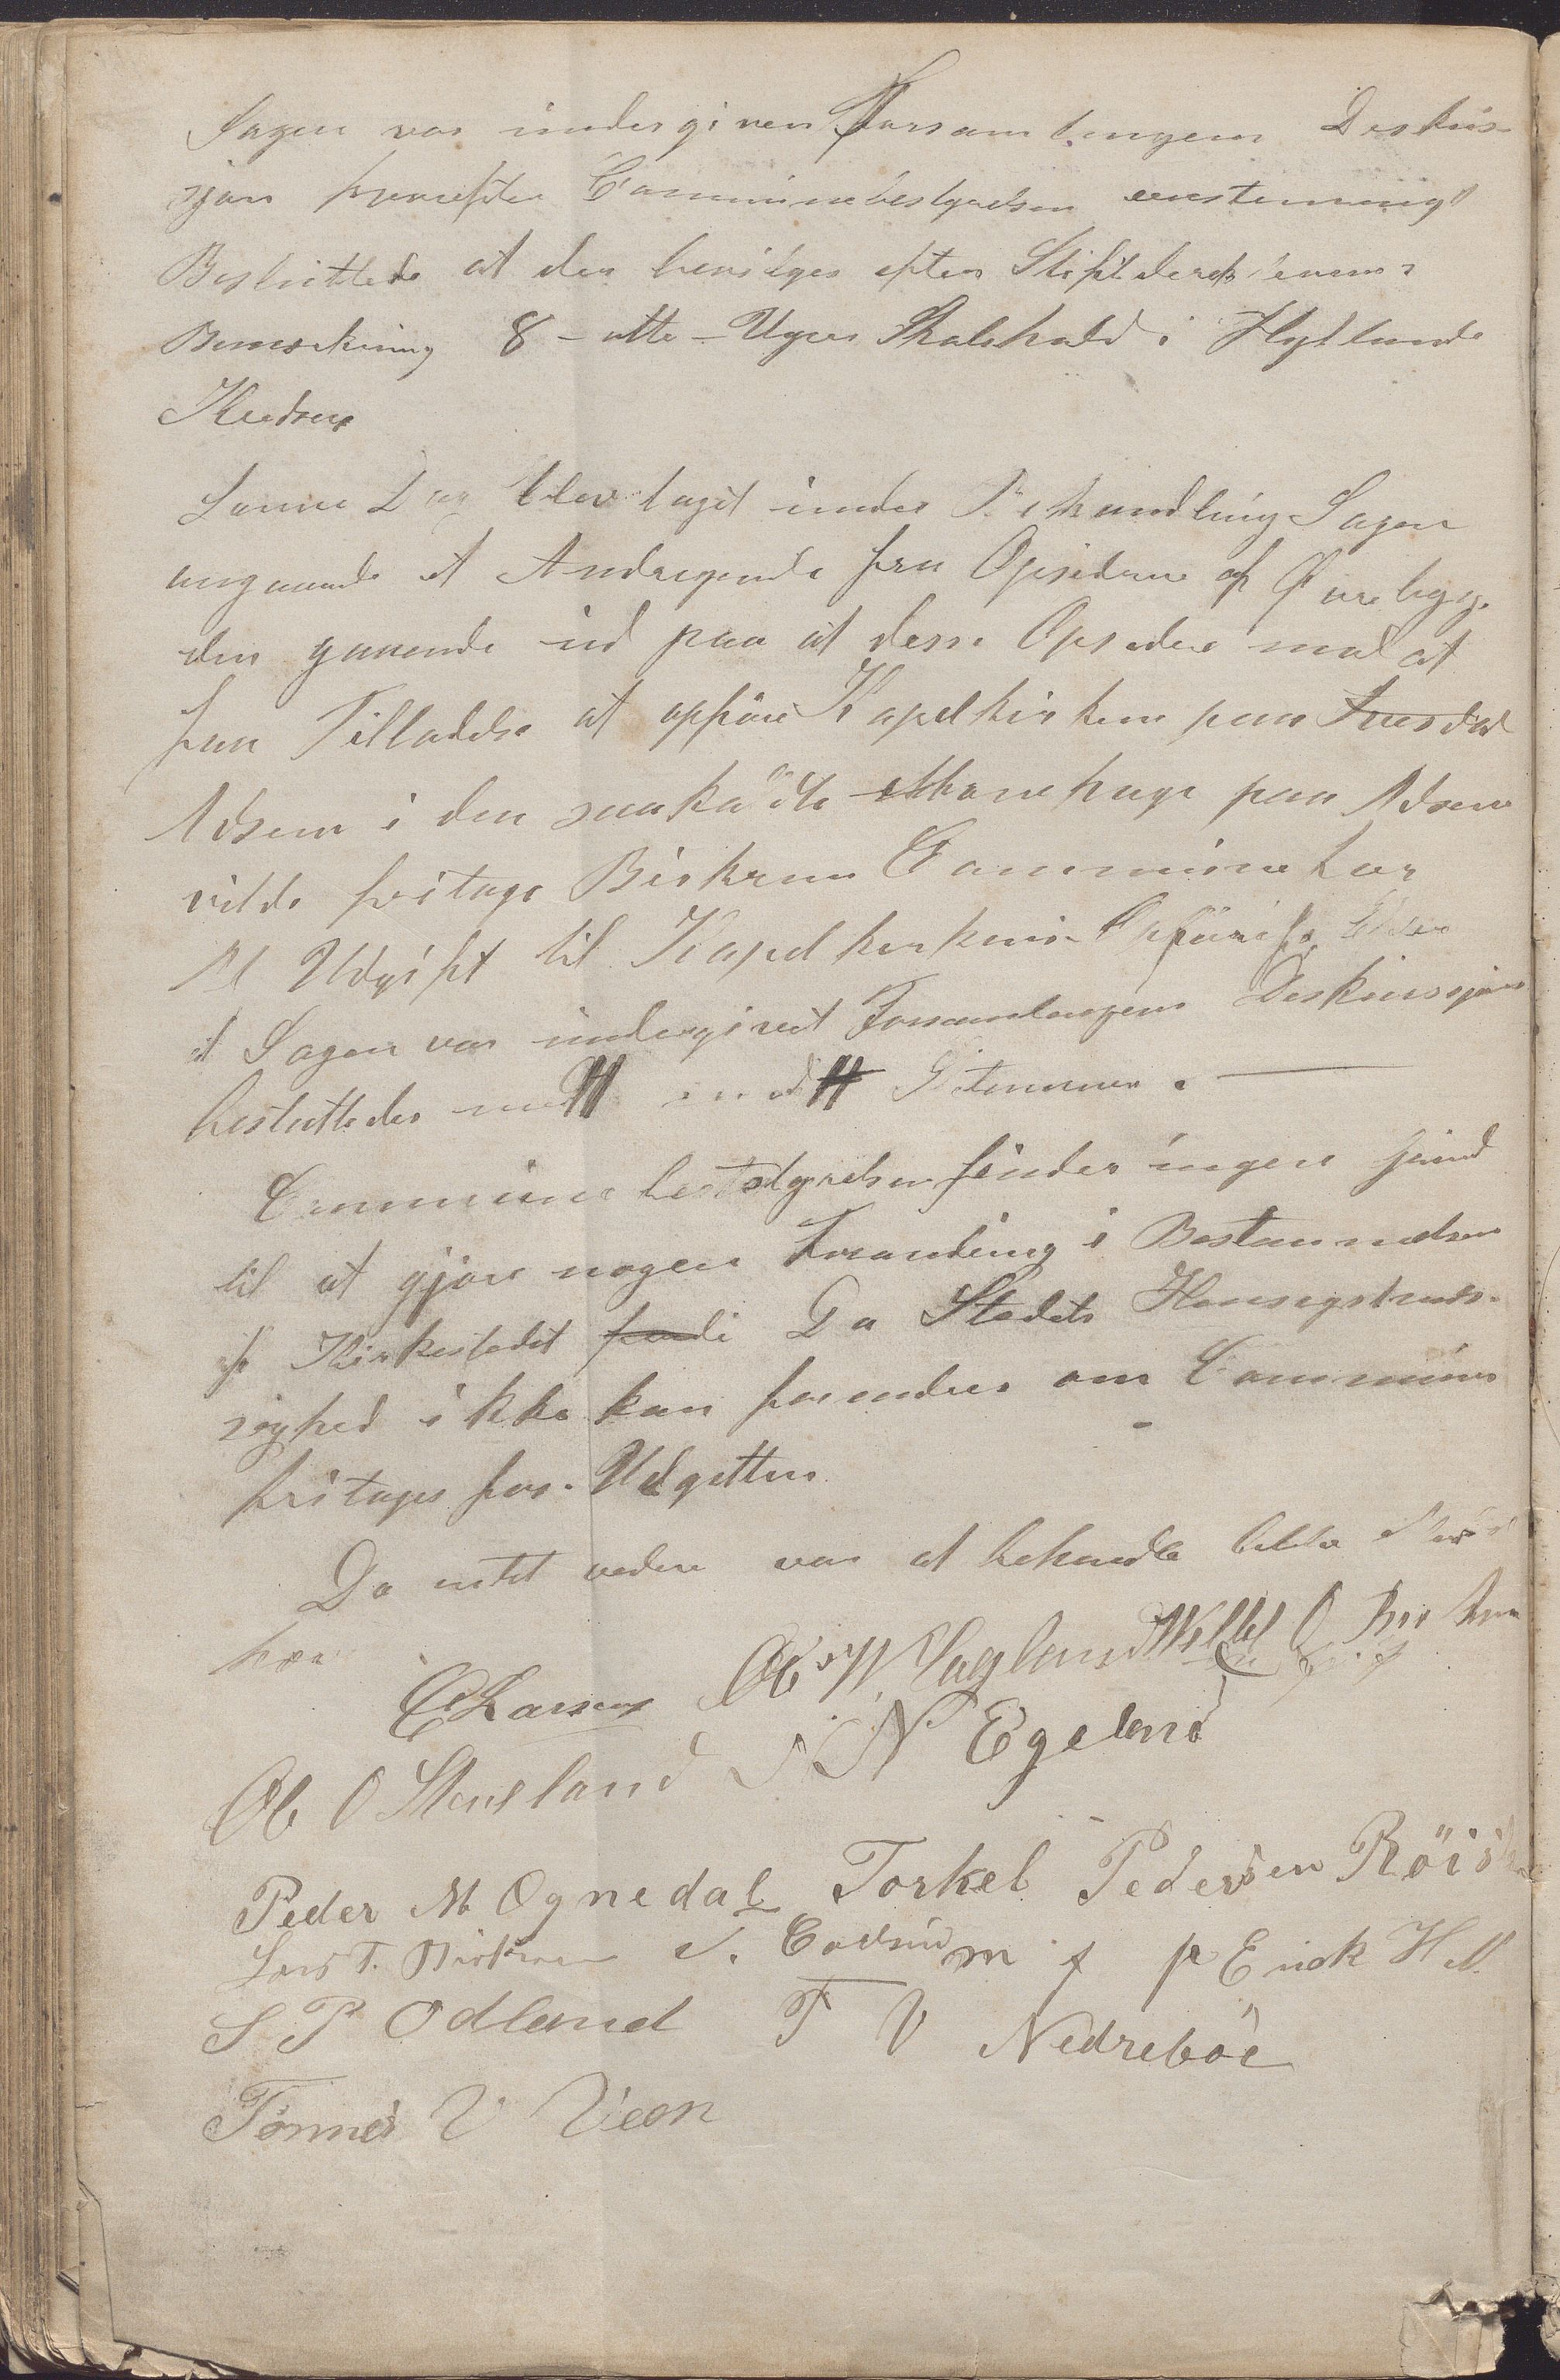 Sagen var undergiven Forsamlingens Deskus-
sjon hvorefter Communebestyrelsen eenstemmigt
Besluttede at der bevilges efter Stiftsderektionens
Bemærkning 8 - otte - Uger Skolehold i Hytlands
Kredsen
Samme Dag blev taget under Behandling Sagen
angaaende et Andragende fra Opsidderne af Ørebyg
den gaaende ud paa at desse Opsidere mod at
faa Tilladelse at opføre Kapelkirken paa
i den saakaldte paa
vilde fritage Birkrem Commune for
Al Udgift til Kapelkirkens Opførelse Efter
at Sagen var undergivet Forsamlingens Deskussjon
besluttedes med mod Stemmer.
Communebestyrelsen finder ingen Grund
til at gjøre nogen Forandring i Bestemmelsen
af Kirkestedet fordi Da Stedets Hensigtsmæs-
sighed ikke kan forandres om Communen
fritages for Udgetten
Da intet videre var at behandle
hæv
C Larsen Ole W Vagland O Birkrem
Ole O Steneland N Egeland
Peder M Ognedal Torkel Pedersen Röis
Lars T. Birkrem
S P Odland T V Nedreböe
Tönnes V Veen